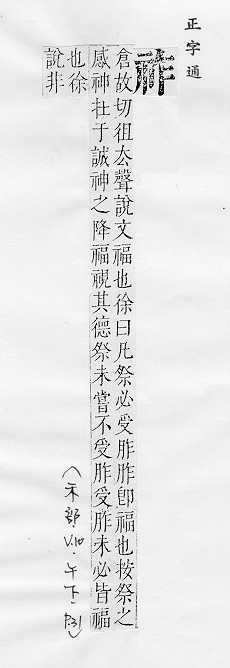 正字通
祚
倉故切徂厺聲說文福也徐曰凡祭必受胙胙卽福也按祭之
感神在于誠神之降福視其德祭未嘗不受胙受胙未必皆福
也徐
說非
(禾部 V.10 · 午下 · P.31)